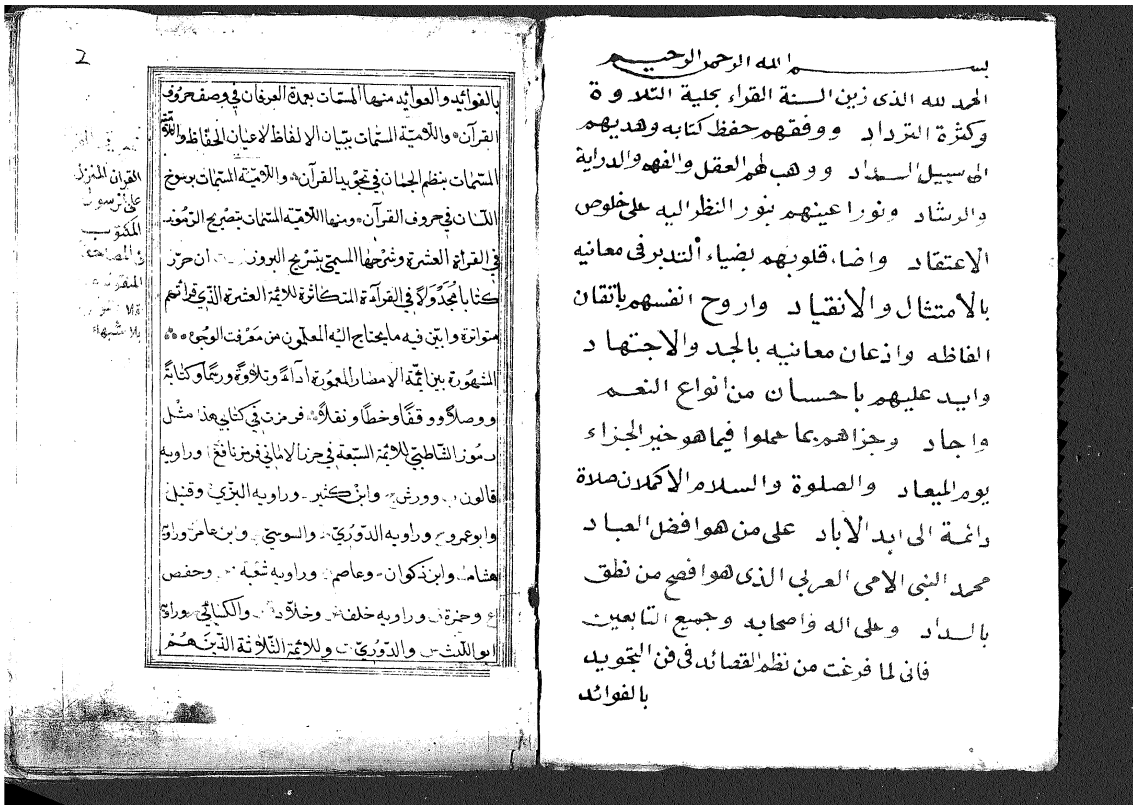 بسم الله الرحمن الرحيم
الحمد لله الذى زين السنة القراء بحلية التلاوة
وكثرة الترداد ووفقهم حفظ كتابه وهديهم
الى سبيل السداد ووهب لهم العقل والفهم والدراية
والرشاد ونور اعينهم بنور النظر اليه على خلوص
الاعتقاد واضاء قلوبهم بضياء التدبر فى معانيه
بالامتثال والانقياد واروح انفسهم باتقان
الفاظه واذعان معانيه بالجد والاجتهاد
وايد عليهم باحسان من انواع النعم
واجاد وجزاهم بما عملوا فيما هو خير الجزاء
يوم الميعاد والصلوة والسلام الاكملان صلاة
دائمة الى ابد الاباد على من هو افضل العباد
محمد النبى الامى العربى الذى هو افصح من نطق
بالسداد وعلى اله واصحابه وجميع التابعين
فانى لما فرغت من نظم القصائد فى فن التجويد
بالفوائد
2
بالفوائد والعوائد منها المسمات بعمدة العرفان في وصف حروف
القرآن واللاميّة المسمات ببيان الالفاظ لاعيان الحفّاظ
المسمّات بنظم الجمان في تجويد القرآن واللاميّة المسمات برسوخ
اللسان في حروف القرآن ومنها اللاميّة المسمّات بتصريح الرموز
في القرأة العشرة وشرحها المسمّى بتسريح البروز ان حرّر
كتابا مجدولا في القرآءة المتكاثرة للائمة العشرة الذي قرائتهم
متواترة وابيّن فيه ما يحتاج اليه المعلّمون من معرفت الوجوه
المشهورة بين ائمّة الامصار المعمورة اداءً وتلاوةً ورسما وكتابةً
ووصلاً ووقفًا وخطًا ونقلاً فرمزت في كتابي هذا مثل
رموز الشّاطبيّ للائمة السّبعة في حرز الاماني فرمز نافع ا وراويه
قالون ب وورش ج وابن كثير وراويه البزّي وقنبل
وابو عمرو وراويه الدّوريّ والسوسيّ وابن عامر وراويه
هشام وابن ذكوان وعاصم وراويه شعبة وحفص
ع وحمزة وراويه خلف وخلّاد والكسائيّ وراويه
ابو اللّيث س والدّوريّ ت وللائمة الثّلاثة الّذين هم
القرآن المنزل
على الرسول
المكتوب
بلا شبهة